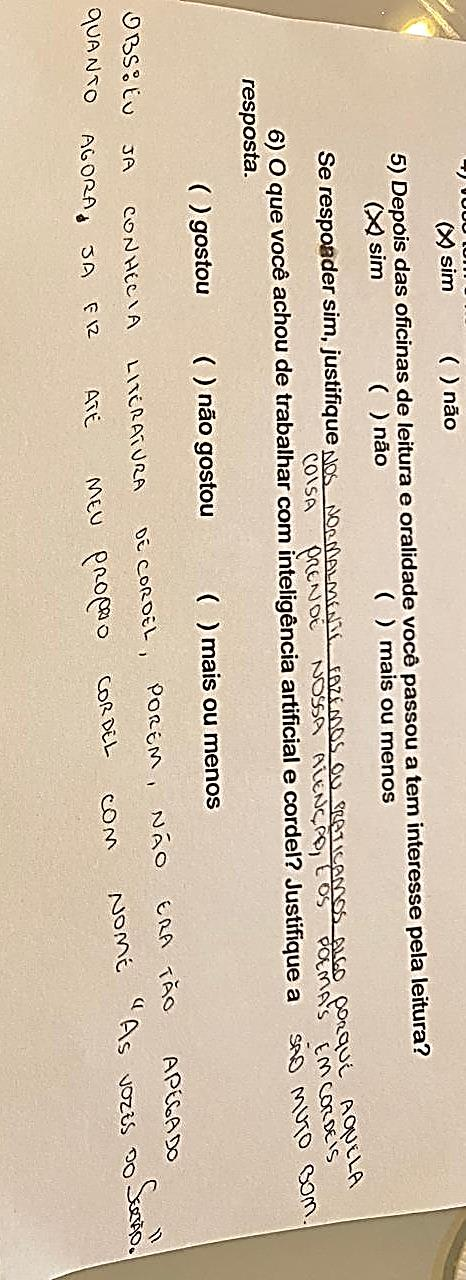 (X) sim ( ) não
5) Depois das oficinas de leitura e oralidade você passou a tem interesse pela leitura?
(X) sim ( ) não ( ) mais ou menos
Se responder sim, justifique NOS NORMALMENTE FAZEMOS OU PRATICAMOS ALGO PORQUE AQUELA
COISA PRENDE NOSSA ATENÇÃO, E OS POEMAS EM CORDEIS
SÃO MUTO BOM.
6) O que você achou de trabalhar com inteligência artificial e cordel? Justifique a
resposta.
( ) gostou ( ) não gostou ( ) mais ou menos
OBS: EU JA CONHECIA LITERATURA DE CORDEL, PORÉM, NÃO ERA TÃO APEGADO
QUANTO AGORA, JA FIZ ATÉ MEU PROPRIO CORDEL COM NOME "AS VOZES DO SERTÃO."